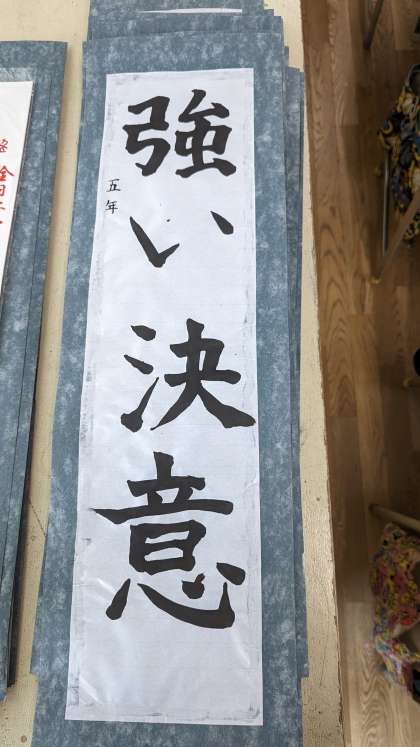 強い決意
五年